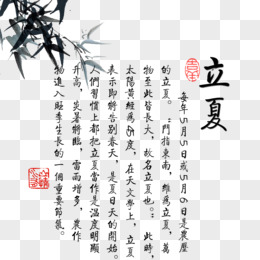 立夏
每年5月5日或5月6日是農歷
的立夏。“鬥指東南，維為立夏，萬
物至此皆長大，故名立夏也。”此時，
太陽黃經為45度，在天文學上，立夏
表示即將告別春天，是夏日天的開始。
人們習慣上都把立夏當作是溫度明顯
升高，炎暑將臨，雷雨增多，農作
物進入旺季生長的一個重要節氣。